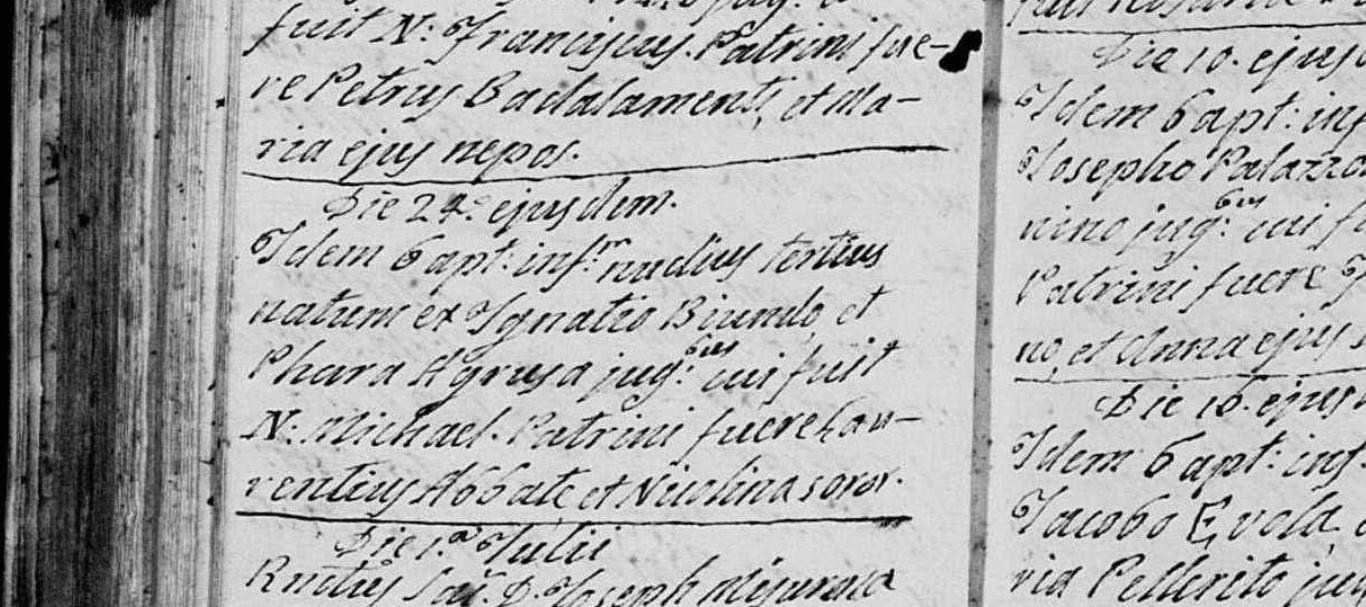 fuit N: Franciscus. Patrini fue-
re Petrus Badalamenti, et Ma-
ria ejus nepos.
Die 24.° ejusdem.
Idem bapt: inf.m nudius tertius
natum ex Ignatio Biundo, et
Phara Agrusa jug:bus cui fuit
N: Michael. Patrini fuere Lau-
rentius Abbate et Nicolina soror.
Die 1.a Julii
Rndus Sac: D. Joseph Misuraca
Die 10. ejus
Idem bapt: inf
Josepho Palazzo
nino jug:bus cui f
Patrini fuere
no, et Anna ejus
Die 16. ejus
Idem bapt: inf
Jacobo Evola,
ria Pellerito jug